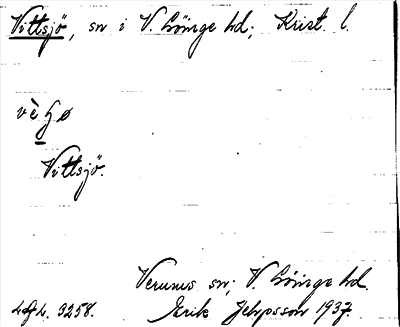 Vittsjö, sn i V. Göinge hd; Krist. l.
vèʃø
Vittsjö.
Verums sn; V. Göinge hd.
3258. Erik Jeppsson 1937.